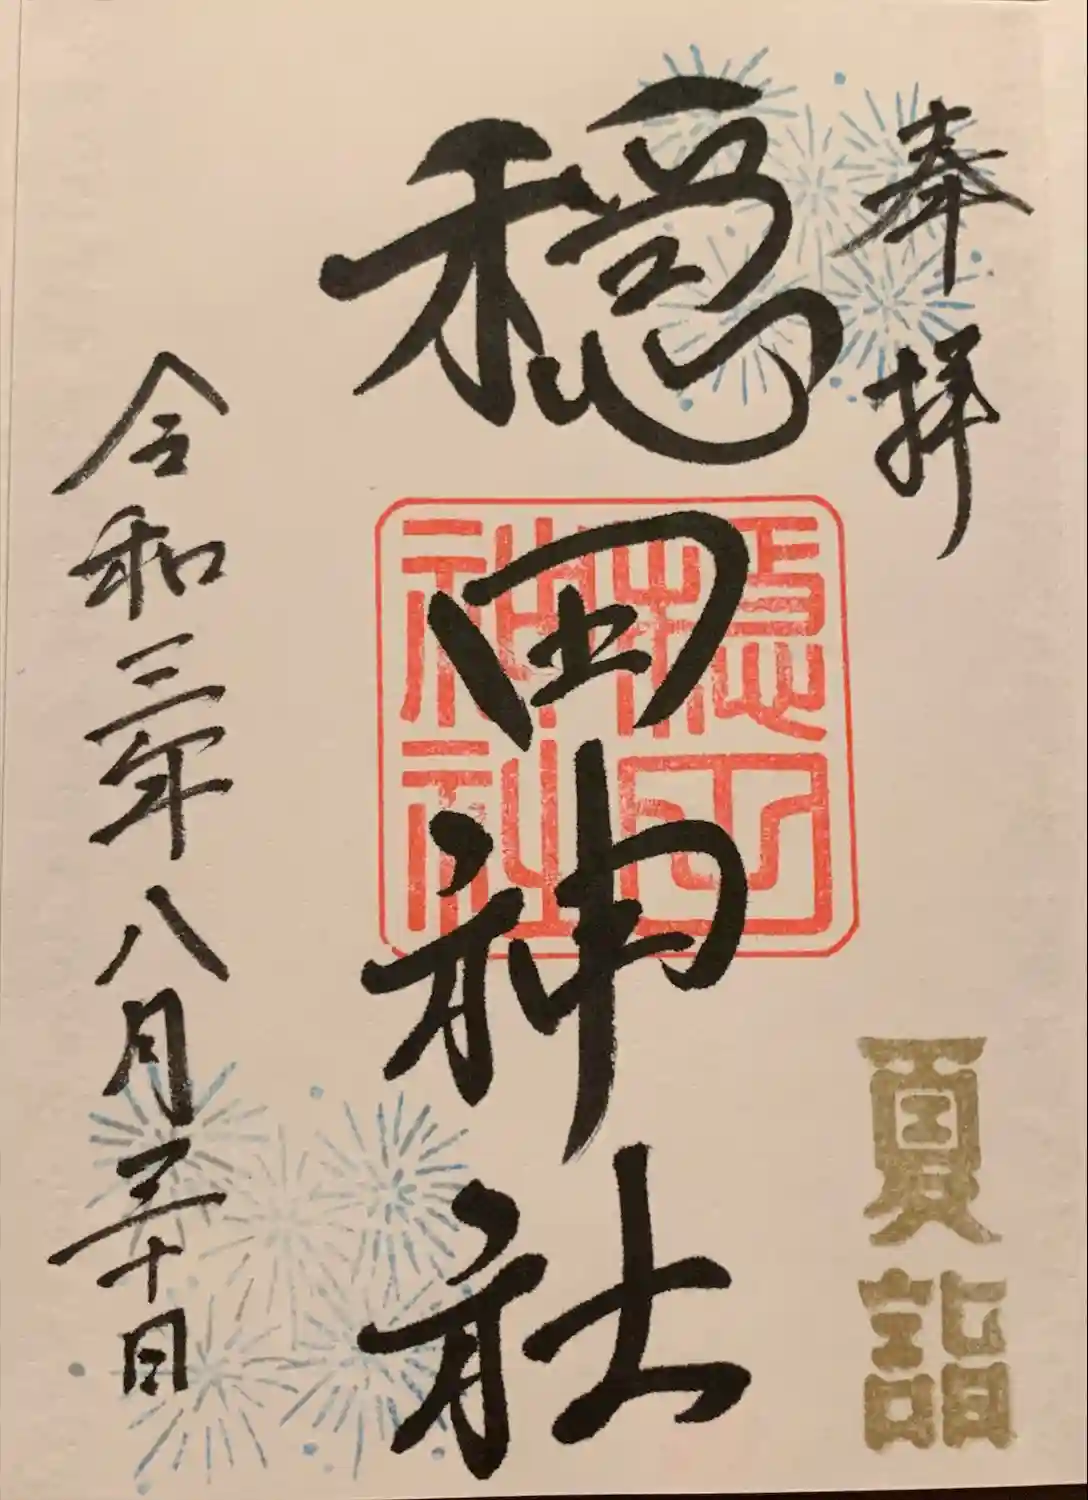 奉拝
夏詣
穏田神社
穏田
神社
令和三年八月三十日